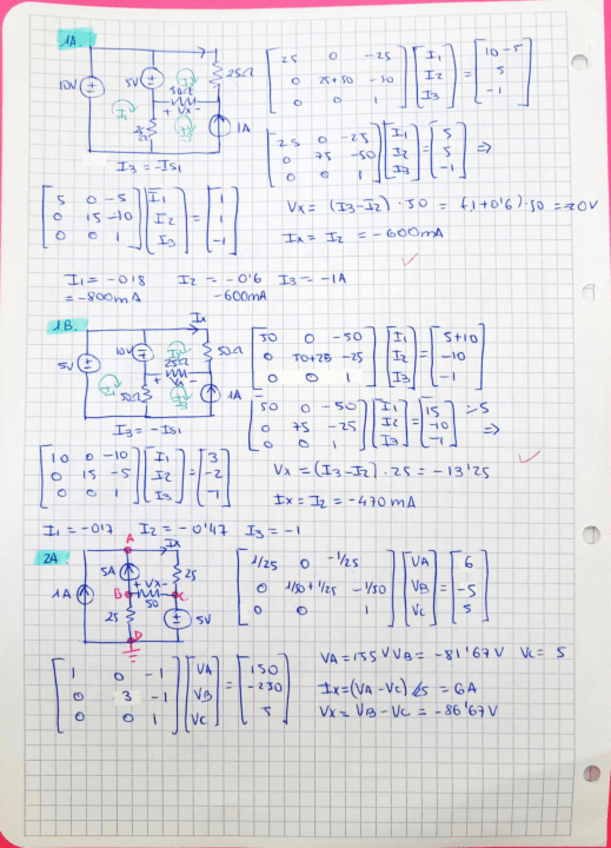 1A.
10V 5V 50Ω + Vx - 25Ω 25Ω 1A I1 I2 I3
[25 0 -25; 0 25+50 -50; 0 0 1] [I1; I2; I3] = [10-5; 5; -1]
I3 = -Is1
[25 0 -25; 0 75 -50; 0 0 1] [I1; I2; I3] = [5; 5; -1] ⇒
[5 0 -5; 0 15 -10; 0 0 1] [I1; I2; I3] = [1; 1; -1]
Vx = (I3-I2)·50 = (-1+0'6)·50 = -20V
Ix = I2 = -600mA
I1 = -0'8 I2 = -0'6 I3 = -1A
= -800mA -600mA
1B.
Ix 5V 10V 25Ω + Vx - 50Ω 50Ω 1A I1 I2 I3
[50 0 -50; 0 50+25 -25; 0 0 1] [I1; I2; I3] = [5+10; -10; -1]
I3 = -Is1
[50 0 -50; 0 75 -25; 0 0 1] [I1; I2; I3] = [15; -10; -1] ÷5 ⇒
[10 0 -10; 0 15 -5; 0 0 1] [I1; I2; I3] = [3; -2; -1]
Vx = (I3-I2)·25 = -13'25
Ix = I2 = -470mA
I1 = -0'7 I2 = -0'47 I3 = -1
2A
A Ix 1A 5A + Vx - 25 B 50 C 25 5V D
[1/25 0 -1/25; 0 1/50+1/25 -1/50; 0 0 1] [VA; VB; VC] = [6; -5; 5]
[1 0 -1; 0 3 -1; 0 0 1] [VA; VB; VC] = [150; -250; 5]
VA = 155V VB = -81'67V VC = 5
Ix = (VA-VC)/25 = 6A
Vx = VB-VC = -86'67V